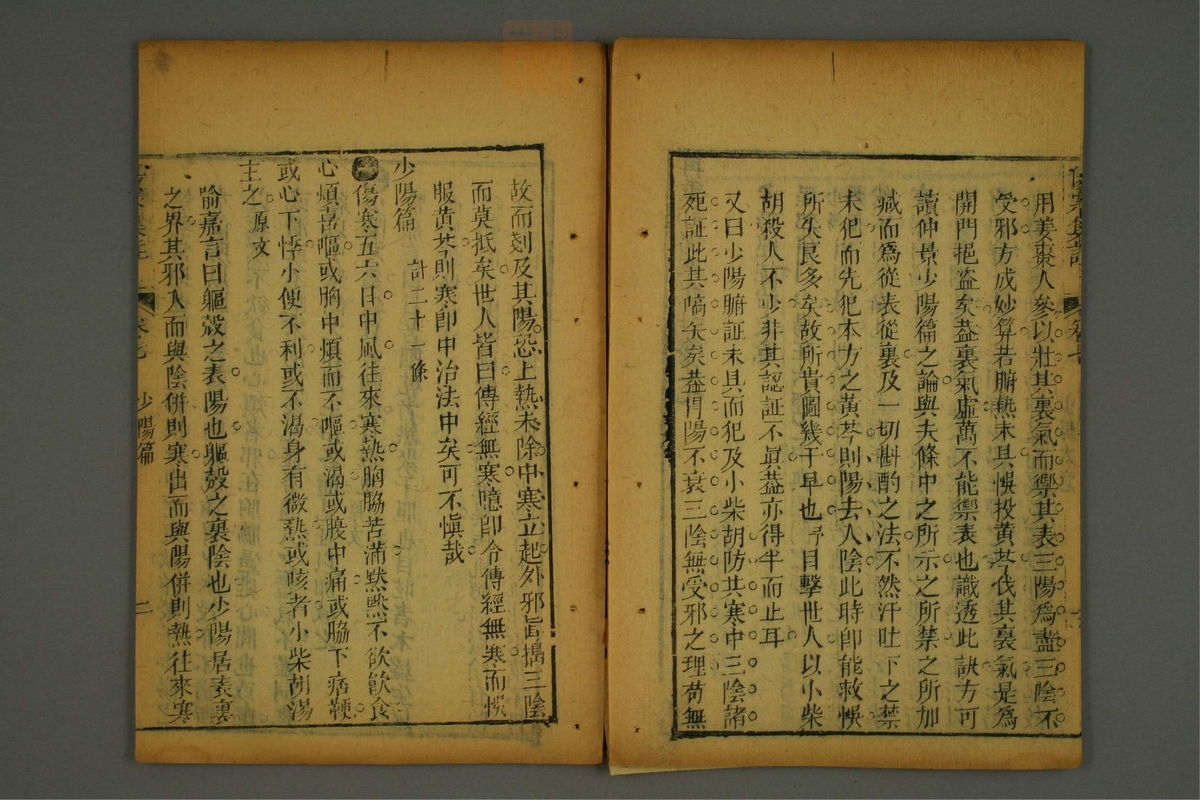 用姜棗人參以壯其裏氣而禦其表三陽為盡三陰不
受邪方成妙算若腑熱未具悞投黃芩伐其裏氣是為
開門揖盜矣葢裏氣虛萬不能禦表也識透此訣方可
讀仲景少陽篇之論與夫條中之所示之所禁之所加
減而為從表從裏及一切斟酌之法不然汗吐下之禁
未犯而先犯本方之黃芩則陽去入陰此時卽能救悞
所失良多矣故所貴圖幾于早也予目擊世人以小柴
胡殺人不少非其認証不眞葢亦得半而止耳
又曰少陽腑証未具而犯及小柴胡防其寒中三陰諸
死証此其嚆矢矣葢胃陽不衰三陰無受邪之理苟無
故而剗及其陽恐上熱未除中寒立起外邪旨搗三陰
而莫抵矣世人皆曰傳經無寒噫卽令傳經無寒而悞
服黃芩則寒卽中治法中矣可不愼哉
少陽篇 計二十一條
傷寒五六日中風往來寒熱胸脇苦滿默默不欲飲食
心煩喜嘔或胸中煩而不嘔或渴或腹中痛或脇下痞鞕
或心下悸小便不利或不渴身有微熱或咳者小柴胡湯
主之 原文
喻嘉言曰軀殼之表陽也軀殼之裏陰也少陽居表裏
之界其邪入而與陰併則寒出而與陽併則熱往來寒
少陽篇 二